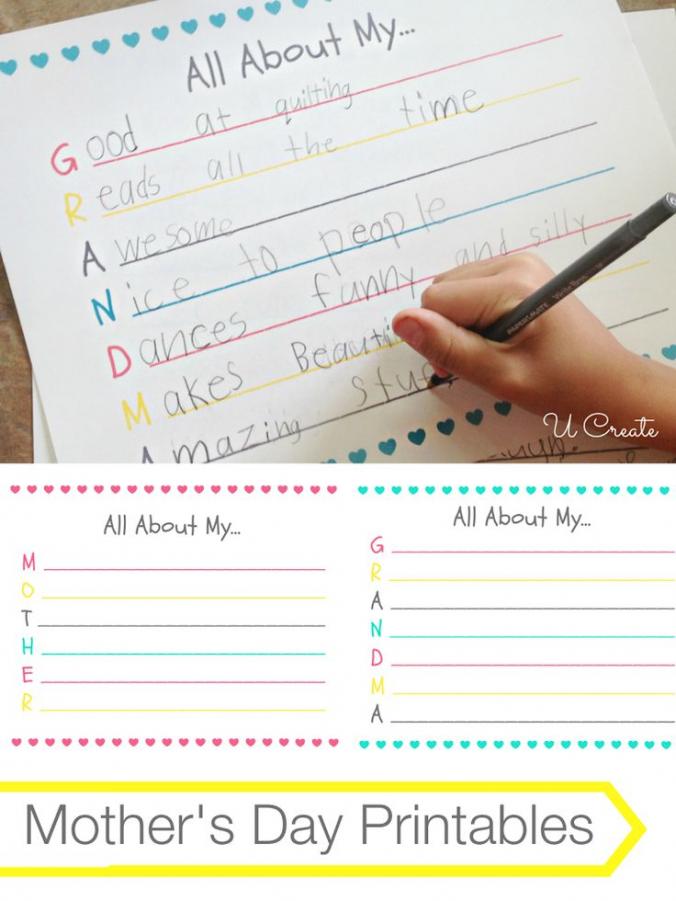 All About My...
Good at quilting
Reads all the time
Awesome
Nice to people
Dances funny and silly
Makes Beauti
stuf
Amazing
PAPERMATE
U Create
All About My...
M
O
T
H
E
R
All About My...
G
R
A
N
D
M
A
Mother's Day Printables